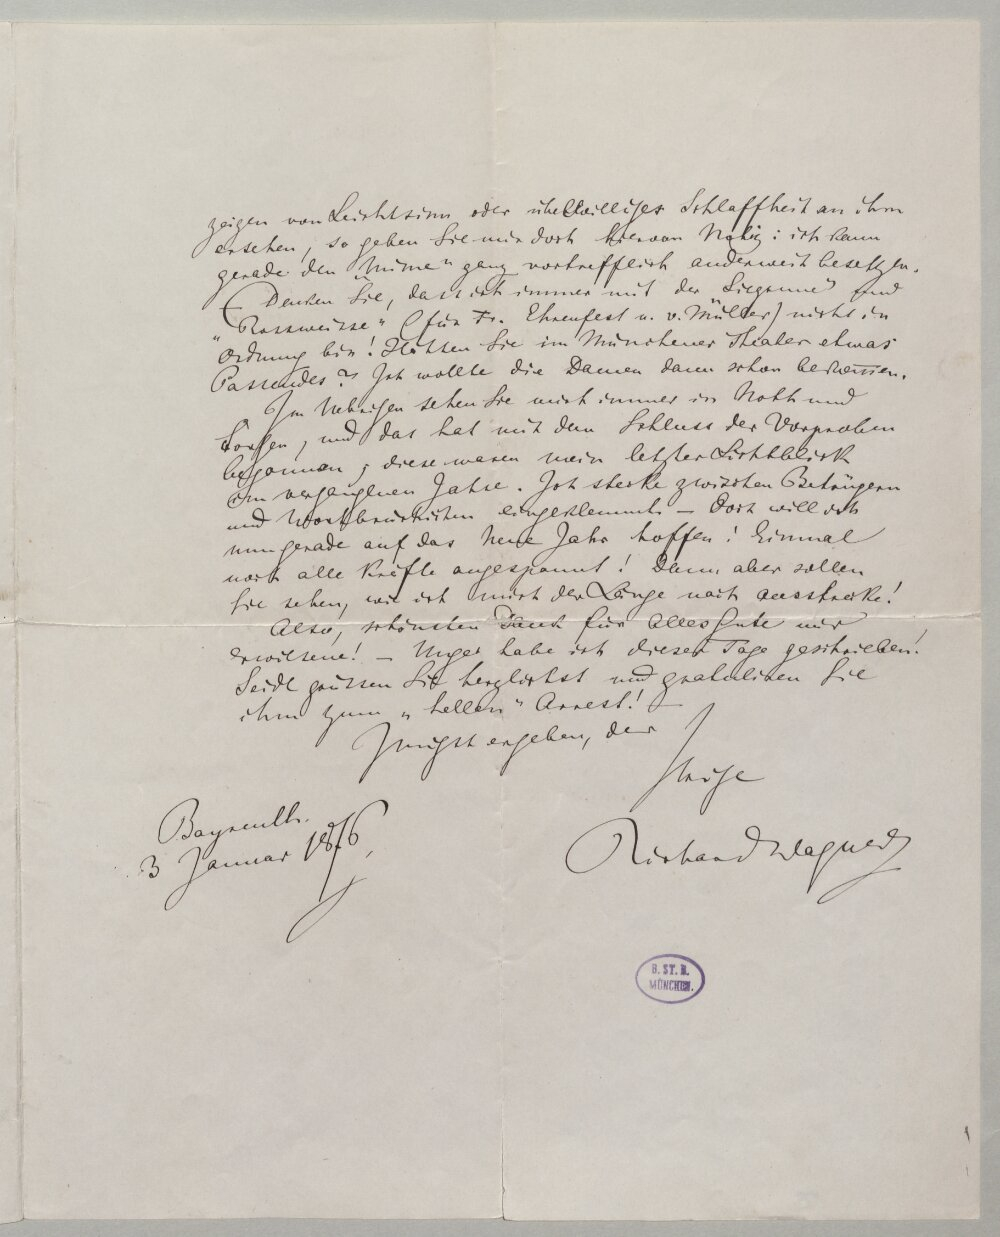 zeigen von Leichtsinn oder übelwilliger Schlaffheit an ihm
ersehen, so geben Sie mir doch hiervon Notiz: ich kann
gerade den „Mime" ganz vortrefflich anderweit besetzen.
(Denken Sie, dass ich immer mit der „Siegrune" und
„Rossweisse" (für Fr. Ehrenfest u. v. Müller) nicht in
Ordnung bin! Hätten Sie im Münchener Theater etwas
Passendes? Ich wollte die Damen dann schon
Im Uebrigen sehen Sie mich immer in Noth und
Sorgen, und das hat mit dem Schluss der Vorproben
begonnen; diese waren mein letzter Lichtblick
im vergangenen Jahre. Ich stecke zwischen Betrügern
und Wortbrüchichen eingeklemmt – doch will ich
nun gerade auf das Neue Jahr hoffen! Einmal
noch alle Kräfte angespannt! Dann aber sollen
Sie sehen, wie ich mich der Länge nach ausstrecke!
Also, schönsten Dank für alles Gute mir
erwiesene! – Unger habe ich dieser Tage geschrieben!
Seidl grüssen Sie herzlichst und gratuliren Sie
ihm zum „hellen" Arrest! –
Innigst ergeben, der
Ihrige
Richard Wagner
Bayreuth.
3 Januar 1876.
B. ST. B.
MÜNCHEN.